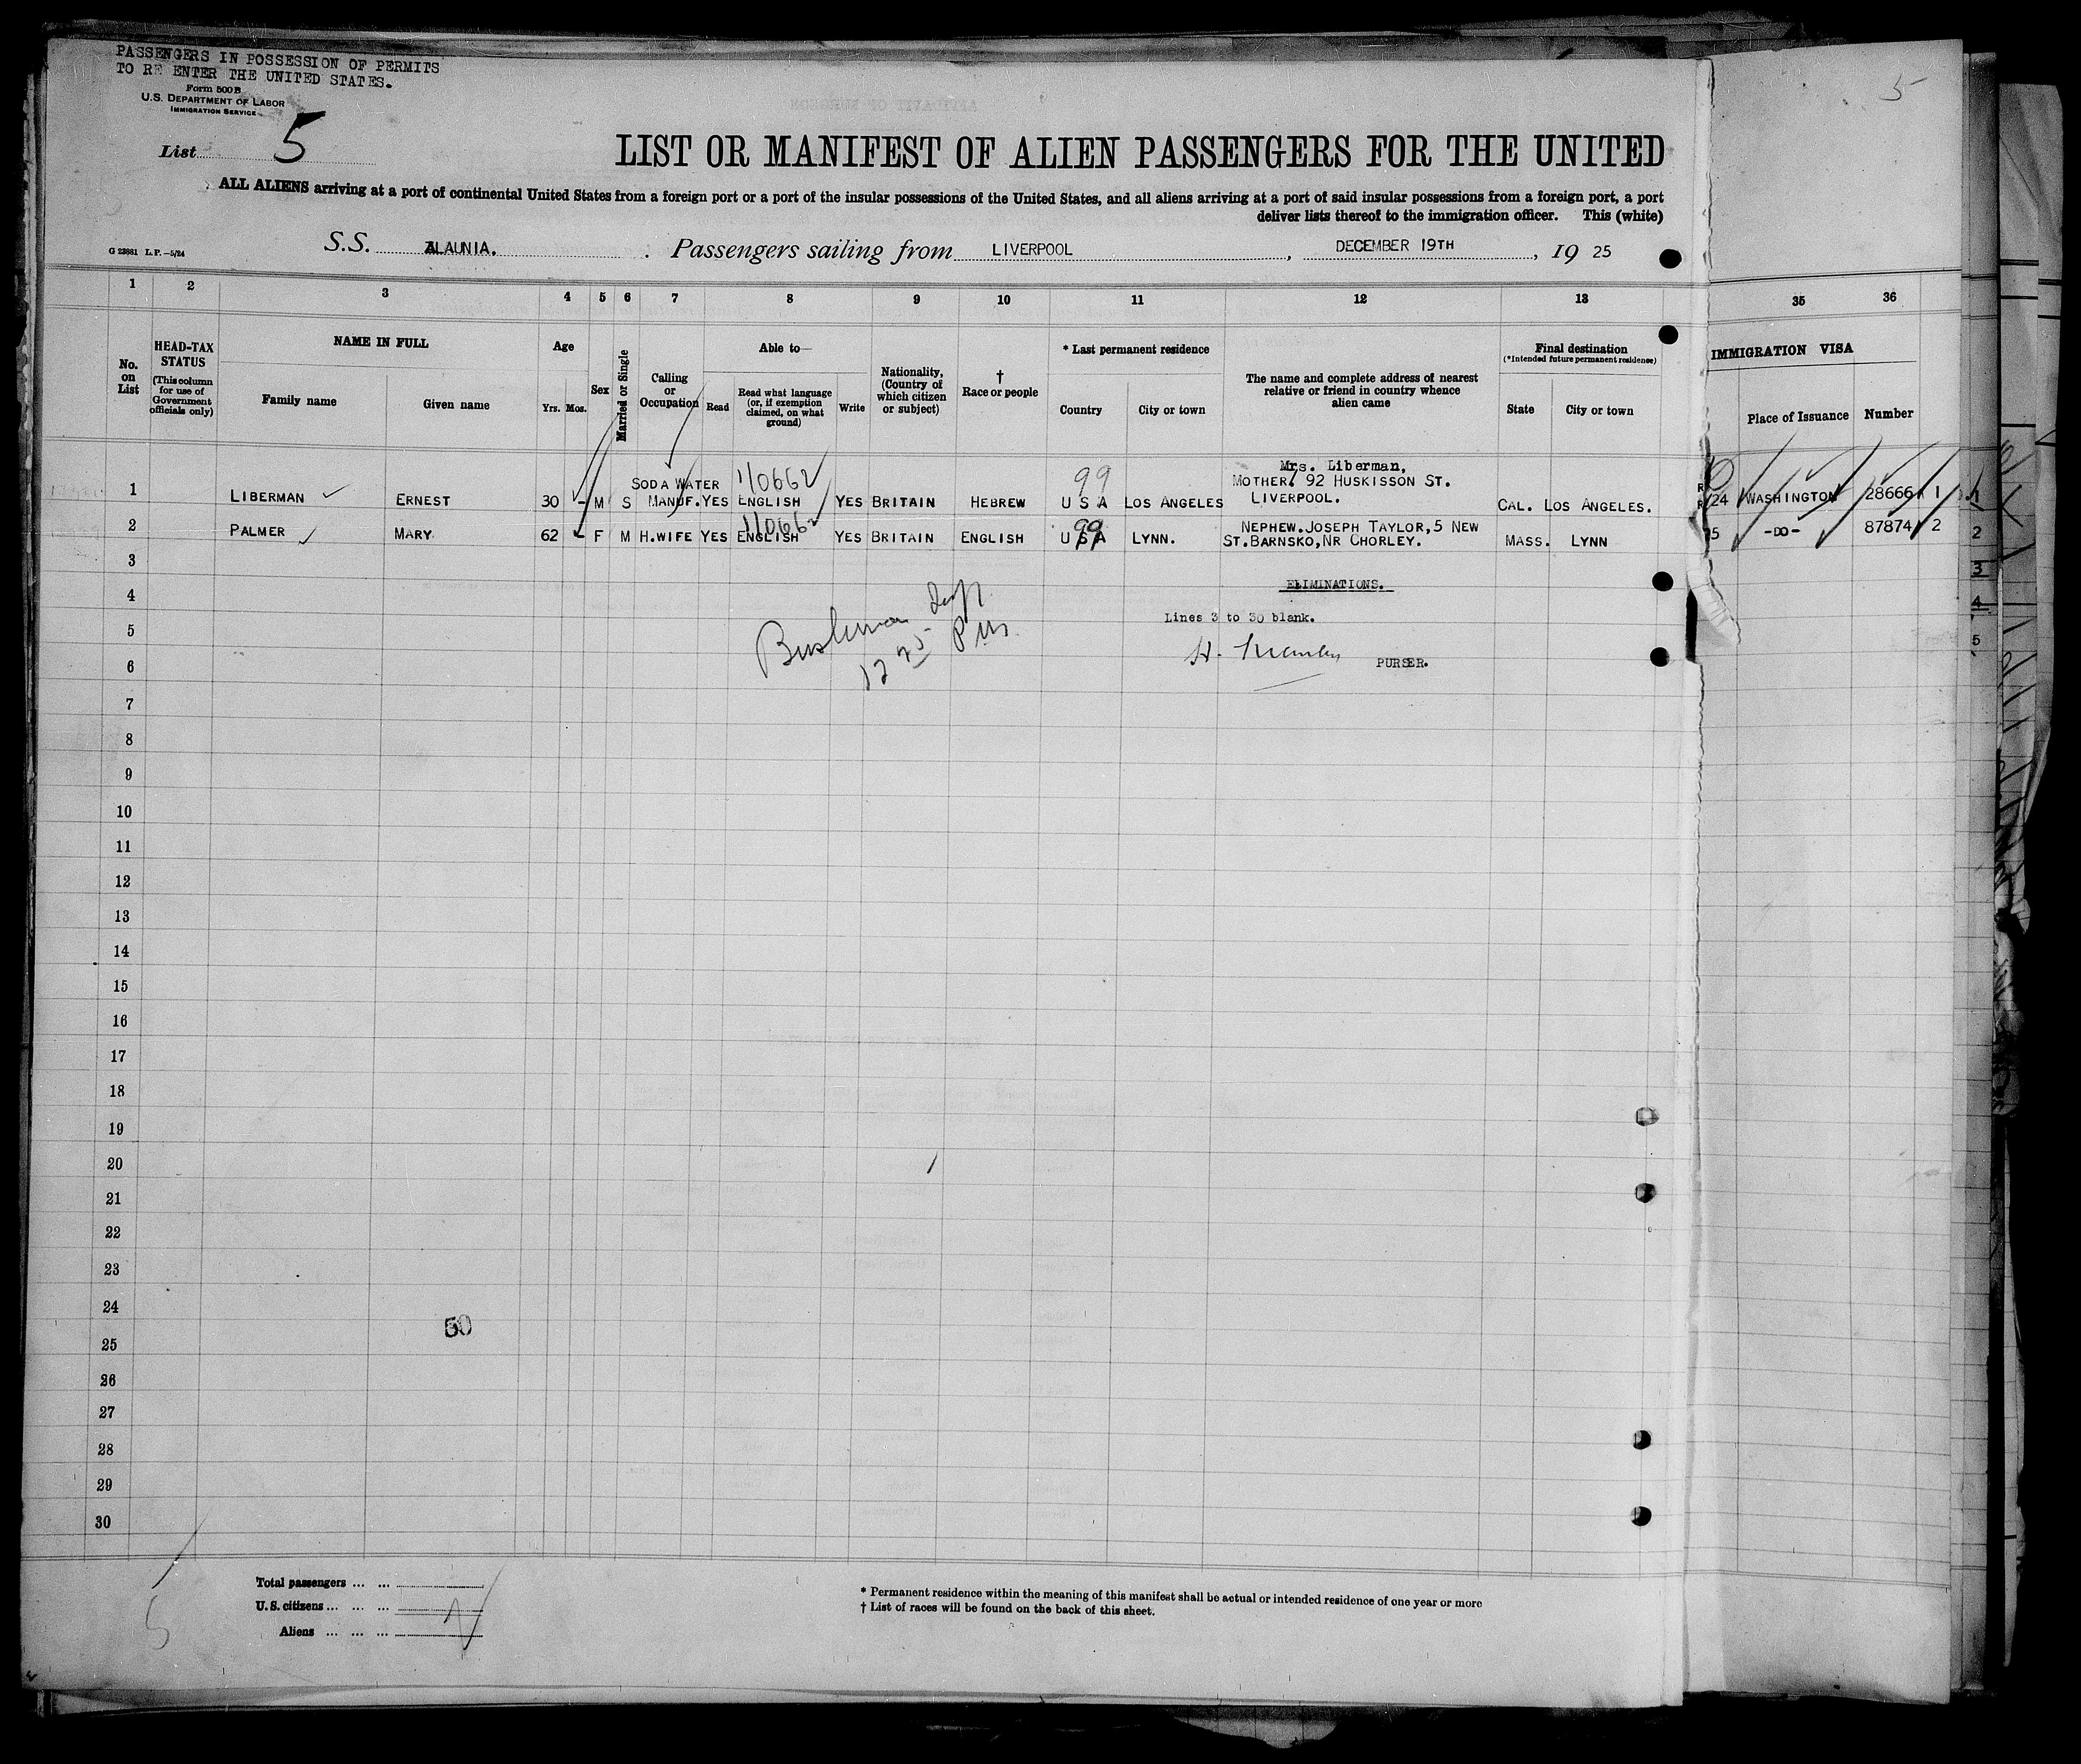 PASSENGERS IN POSSESSION OF PERMITS
TO RE ENTER THE UNITED STATES.
Form 500 B
U.S. DEPARTMENT OF LABOR
IMMIGRATION SERVICE
List 5
5
LIST OR MANIFEST OF ALIEN PASSENGERS FOR THE UNITED
ALL ALIENS arriving at a port of continental United States from a foreign port or a port of the insular possessions of the United States, and all aliens arriving at a port of said insular possessions from a foreign port, a port
deliver lists thereof to the immigration officer. This (white)
G 23881 L.P.—5/24
S.S. ALAUNIA. Passengers sailing from LIVERPOOL, DECEMBER 19TH, 19 25
1 2 3 4 5 6 7 8 9 10 11 12 13 35 36
No. on List
HEAD-TAX STATUS
(This column for use of Government officials only)
NAME IN FULL
Family name
Given name
Age
Yrs. Mos.
Sex
Married or Single
Calling or Occupation
Able to—
Read
Read what language (or, if exemption claimed, on what ground)
Write
Nationality, (Country of which citizen or subject)
† Race or people
* Last permanent residence
Country
City or town
The name and complete address of nearest relative or friend in country whence alien came
Final destination
(*Intended future permanent residence)
State
City or town
IMMIGRATION VISA
Place of Issuance
Number
110662 99 Mrs. Liberman,
SODA WATER MOTHER, 92 HUSKISSON ST.
1 LIBERMAN ERNEST 30 - M S MANUF. YES ENGLISH YES BRITAIN HEBREW U S A LOS ANGELES LIVERPOOL. CAL. LOS ANGELES. 24 WASHINGTON 28666 1 1
110662 99 NEPHEW. JOSEPH TAYLOR, 5 NEW
2 PALMER MARY 62 - F M H.WIFE YES ENGLISH YES BRITAIN ENGLISH U S A LYNN. ST. BARNSKO, NR CHORLEY. MASS. LYNN 5 -DO- 87874 2 2
3 3
ELIMINATIONS.
4 4
Lines 3 to 30 blank.
5 5
PURSER.
6
7
8
9
10
11
12
13
14
15
16
17
18
19
20
21
22
23
24
50
25
26
27
28
29
30
Total passengers ... ...
U.S. citizens ... ... ...
Aliens ... ... ...
5
* Permanent residence within the meaning of this manifest shall be actual or intended residence of one year or more
† List of races will be found on the back of this sheet.